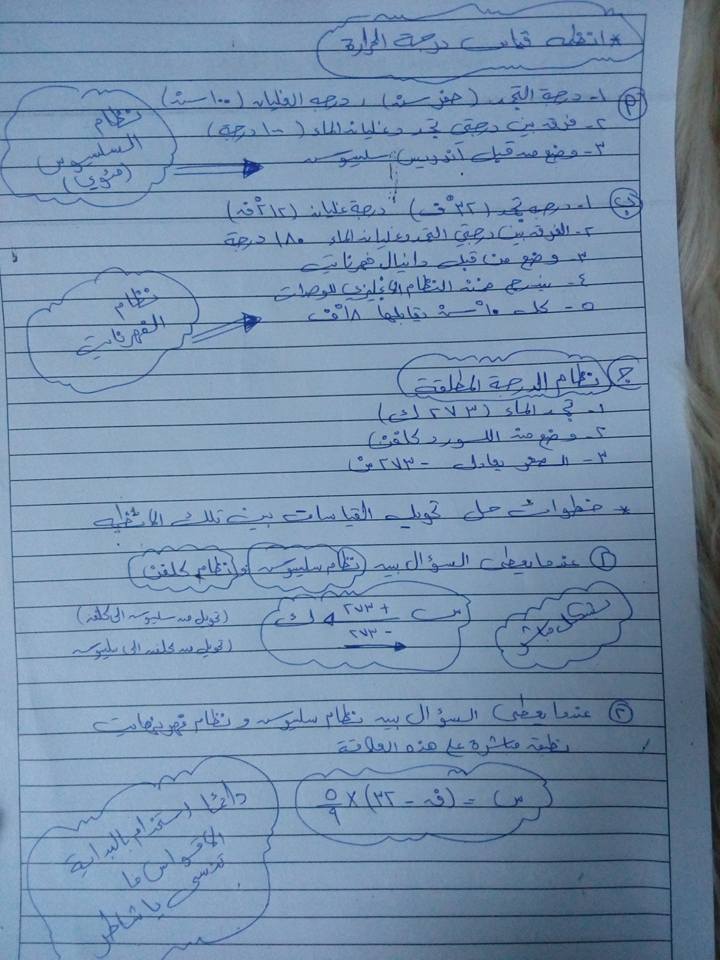 * انظمة قياس درجة الحرارة
أ
١- درجة التجمد (صفر سْ) ، درجة الغليان (١٠٠ سْ)
٢- فرق بين درجتي تجمد وغليان الماء (١٠٠ درجة)
٣- وضع من قبل أندريس سليوس
نظام
السلسوس
(مئوي)
ب
١- درجة تجمد (٣٢ْ ف) درجة غليان (٢١٢ْ ف)
٢- الفرق بين درجتي التجمد وغليان الماء ١٨٠ درجة
٣- وضع من قبل دانيال فهرنايت
٤- ضمن النظام الانجليزي للوحدات
٥- كل ١٠ْ س يقابلها ١٨ْ ف
نظام
الفهرنايت
ج نظام الدرجة المطلقة
١- تجمد الماء (٢٧٣ ك)
٢- وضع من اللورد كلفن
٣- الصفر يعادل -٢٧٣ سْ
* خطوات حل تحويل القياسات بين تلك الأنظمة
١ عندما يعطى السؤال بين نظام سليوس و نظام كلفن
بشكل مباشر
س +٢٧٣ ك
-٢٧٣
(تحويل من سليوس الى كلفن)
(تحويل من كلفن الى سليوس)
٢ عندما يعطى السؤال بين نظام سليوس و نظام فهرنهايت
نطبق مباشرة على هذه العلاقة
س = (ف - ٣٢) × ٥/٩
دائما استخدام بالبداية
الأقواس ما
تنسى يا شاطر